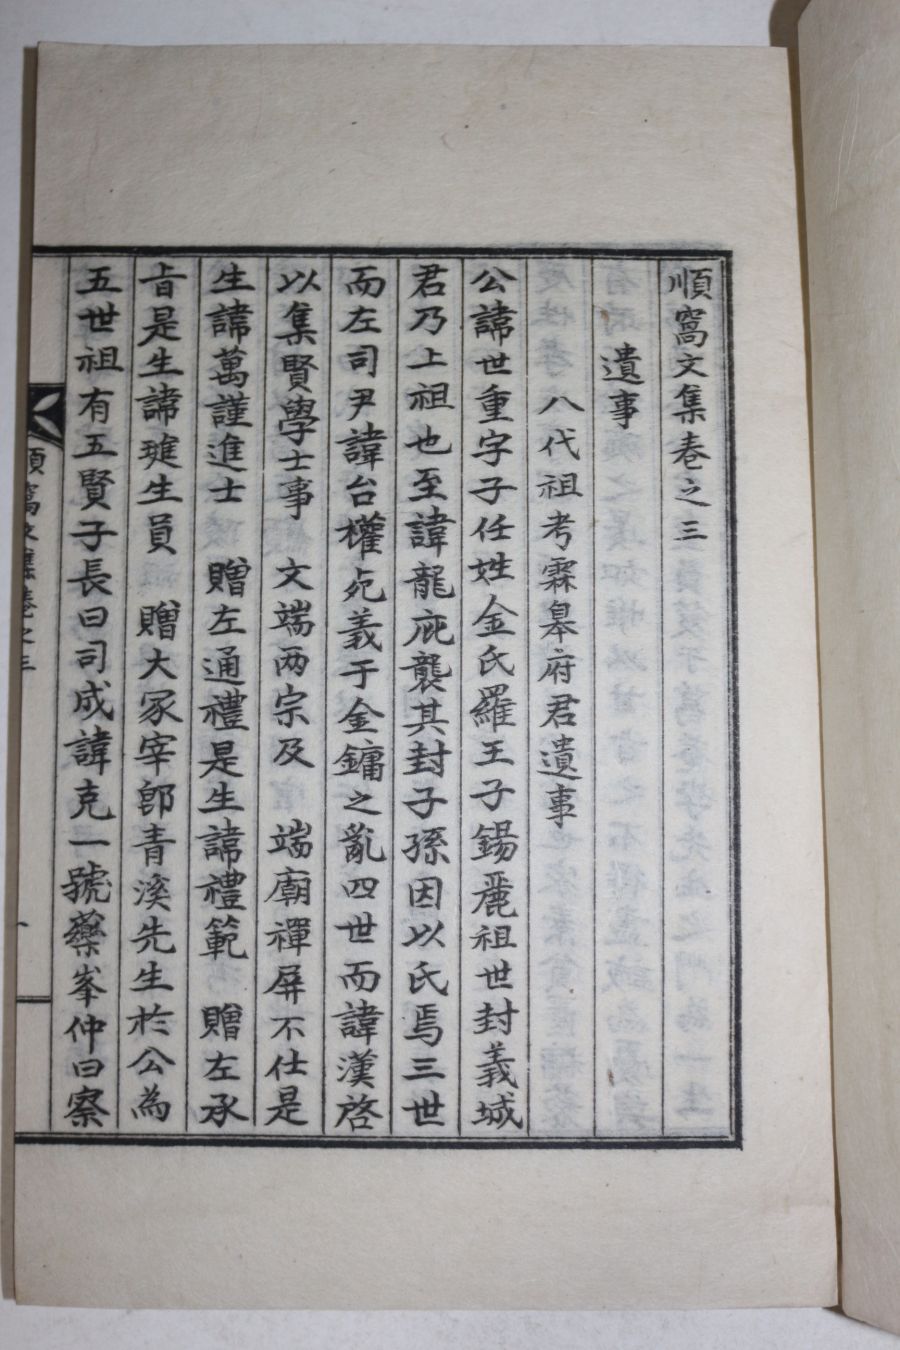 順窩文集卷之三
遺事
八代祖考霖皋府君遺事
公諱世重字子任姓金氏羅王子錫麗祖世封義城
君乃上祖也至諱龍庇襲其封子孫因以氏焉三世
而左司尹諱台權死義于金鏞之亂四世而諱漢啓
以集賢學士事 文端兩宗及 端廟禪屏不仕是
生諱萬謹進士 贈左通禮是生諱禮範 贈左承
旨是生諱璡生員 贈大冢宰郎青溪先生於公為
五世祖有五賢子長曰司成諱克一號藥峯仲曰察
順窩文集卷之三
一